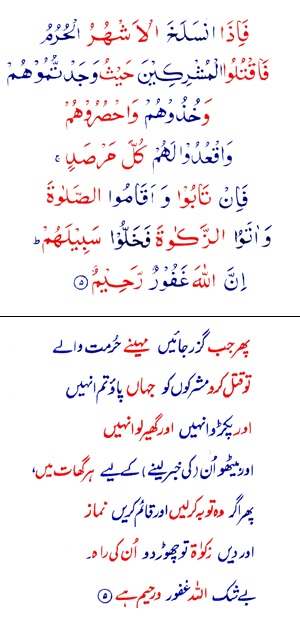 فَاِذَا انْسَلَخَ الْاَشْهُرُ الْحُرُمُ
فَاقْتُلُوا الْمُشْرِكِيْنَ حَيْثُ وَجَدْتُّمُوْهُمْ
وَخُذُوْهُمْ وَاحْصُرُوْهُمْ
وَاقْعُدُوْا لَهُمْ كُلَّ مَرْصَدٍ ۚ
فَاِنْ تَابُوْا وَ اَقَامُوا الصَّلٰوةَ
وَ اٰتَوُا الزَّكٰوةَ فَخَلُّوْا سَبِيْلَهُمْ ؕ
اِنَّ اللّٰهَ غَفُوْرٌ رَّحِيْمٌ ۝۵
پھر جب گزر جائیں مہینے حُرمت والے
تو قتل کردو مشرکوں کو جہاں پاؤ تم انہیں
اور پکڑو انہیں اور گھیر لو انہیں
اور بیٹھو اُن (کی خبر لینے) کے لیے ہر گھات میں،
پھر اگر وہ توبہ کرلیں اور قائم کریں نماز
اور دیں زکوٰۃ تو چھوڑ دو اُن کی راہ۔
بے شک اللہ غفور و رحیم ہے ۝۵